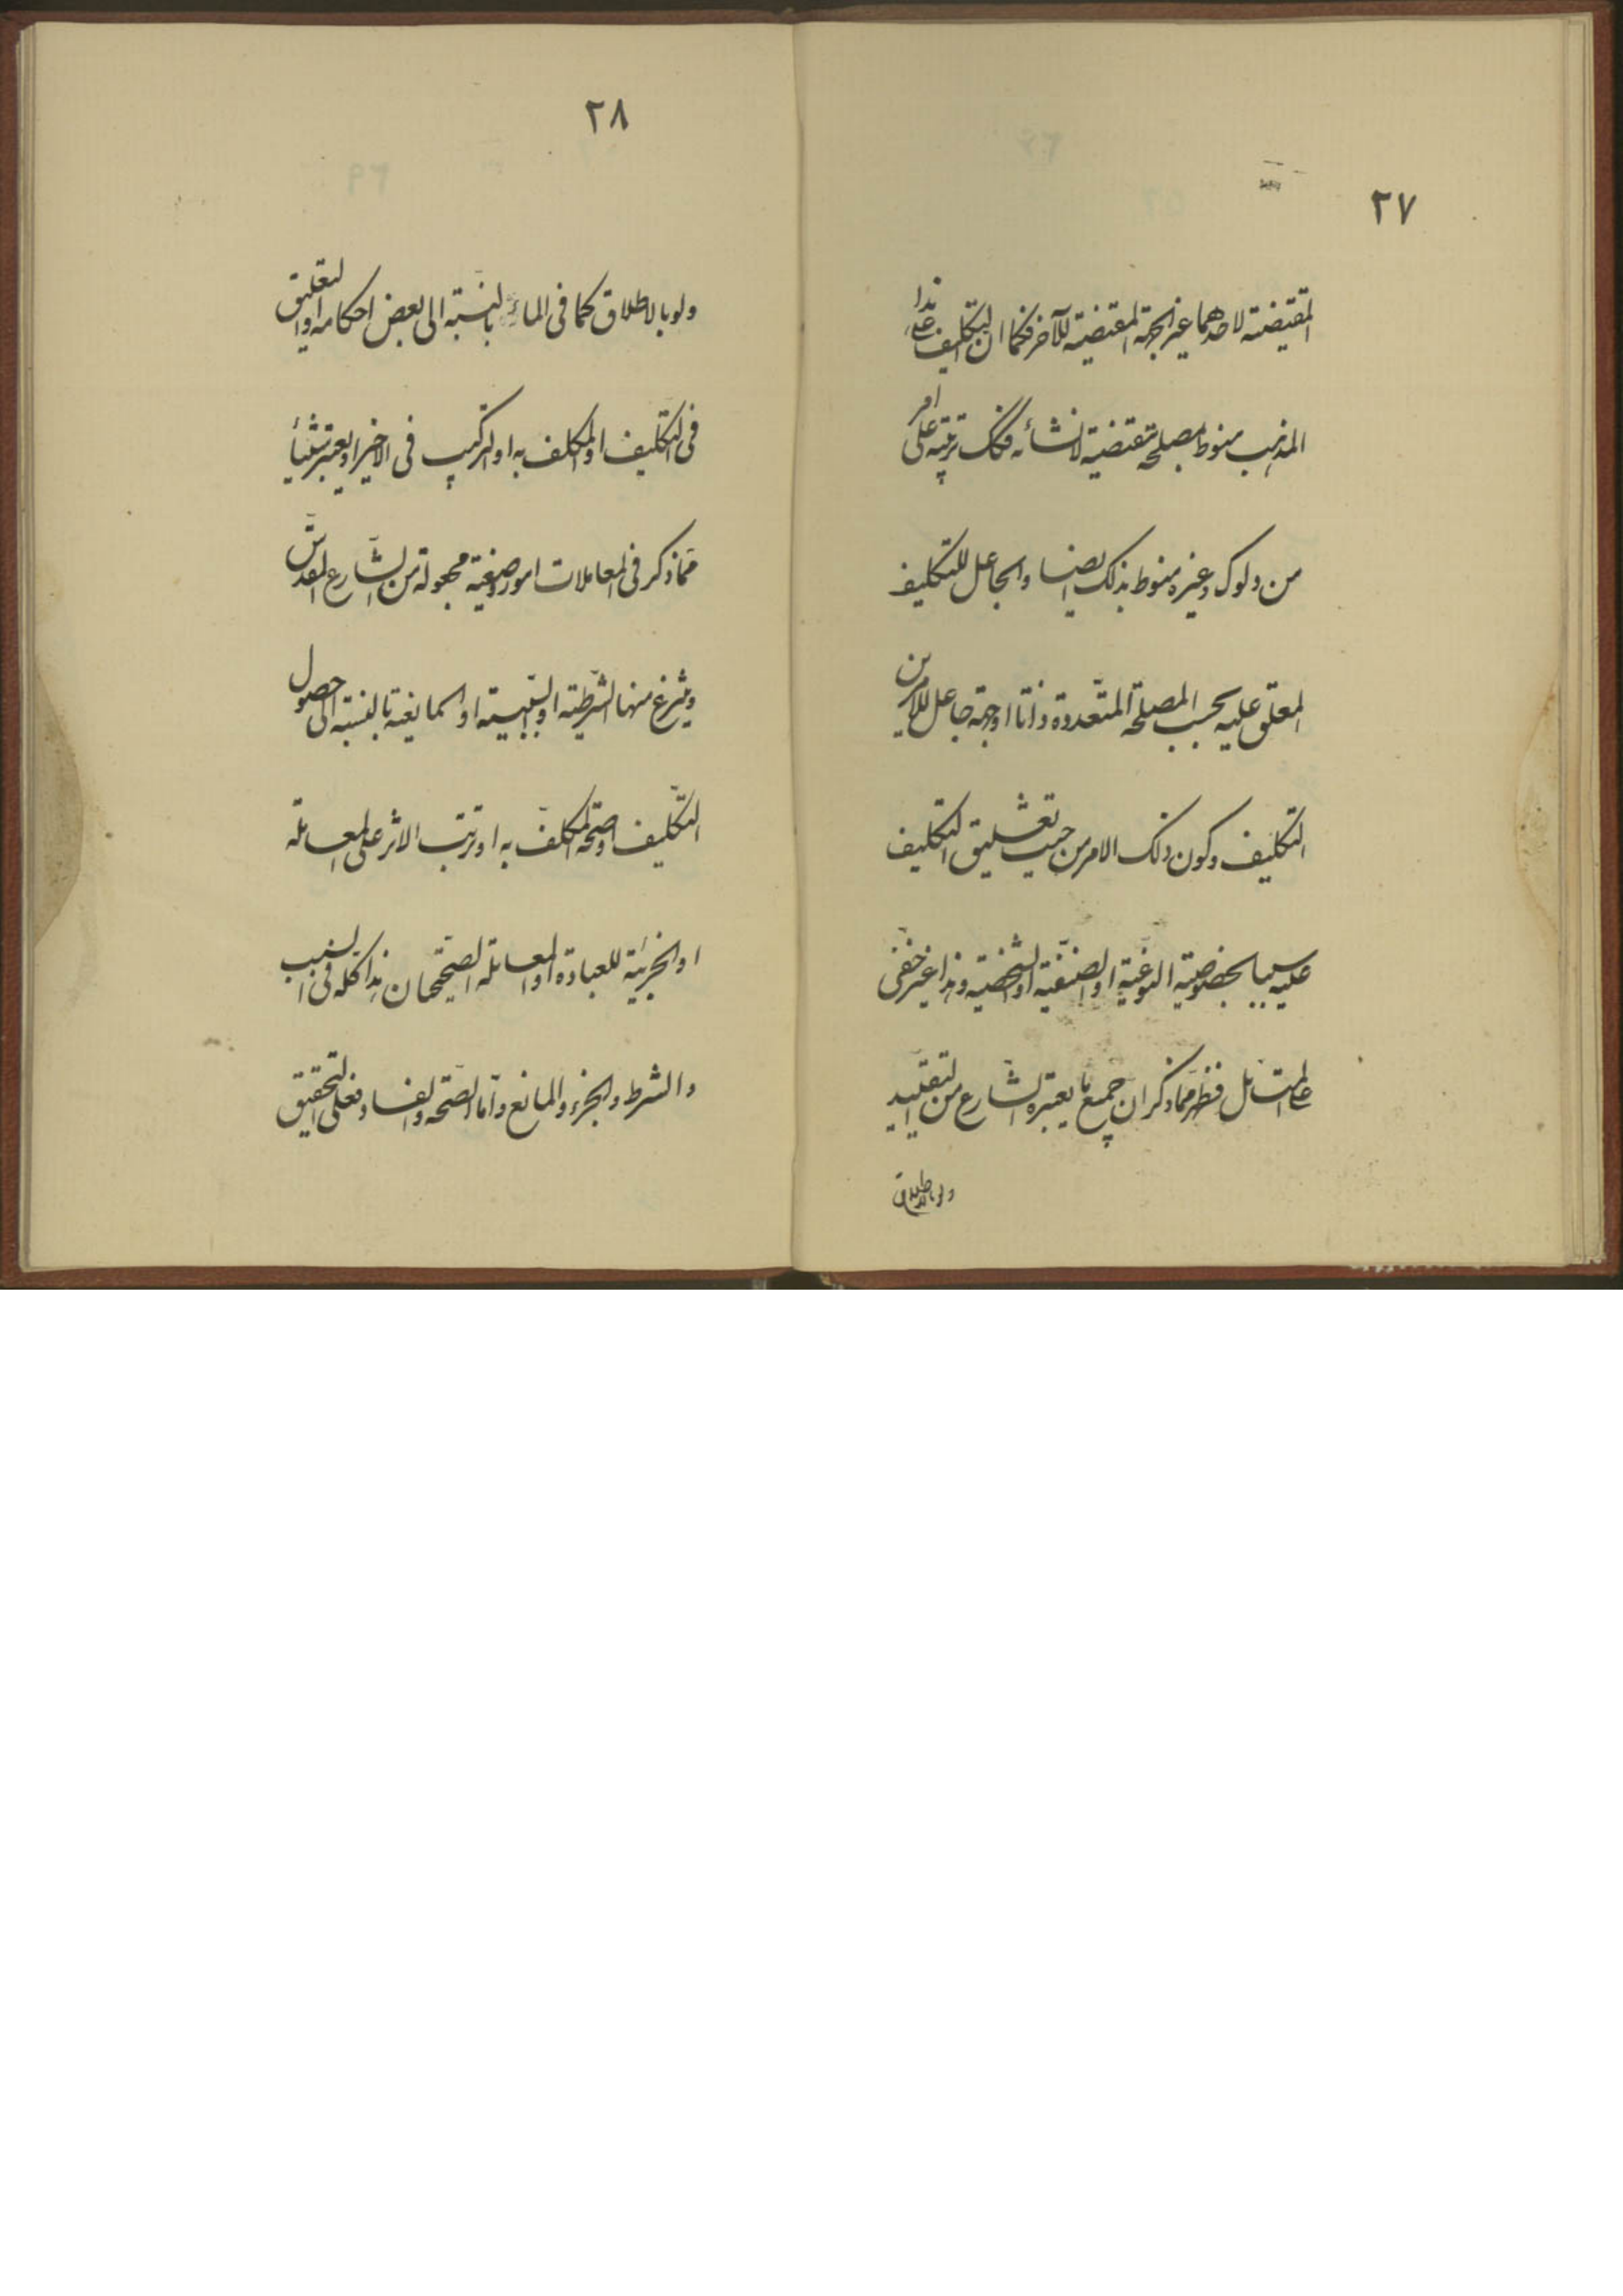 ٢٧
المقتضية لاحدهما غير الجهة المقتضية للآخر فكما ان التكليف على هذا
المذهب منوط بمصلحة مقتضية لانشائه فكك ترتبه على امر
من دلوك وغيره منوط بذلك ايضا والجاعل للتكليف
المعلق عليه بحسب المصلحة المتعددة ذاتا او جهة جاعل للامرين
التكليف وكون ذلك الامر من حيث تعليق التكليف
عليه سببا بخصوصية النوعية او الصنفية او الشخصية وهذا غير خفى
على المتأمل فظهر مما ذكر ان جميع ما يعتبره الشارع من التقييد
ولو بالاطلاق
٢٨
ولو بالاطلاق كما فى الماء بالنسبة الى بعض احكامه او التعليق
فى التكليف او المكلف به او التركيب فى الاخير او يعتبر شيئا
مما ذكر فى المعاملات امور وضعية مجعولة من الشارع المقدس
وينتزع منها الشرطية او السببية او المانعية بالنسبة الى حصول
التكليف او صحة المكلف به او ترتب الاثر على المعاملة
او الجزئية للعبادة او المعاملة الصحيحتان هذا كله فى السبب
والشرط والجزء والمانع واما الصحة والفساد فعلى التحقيق